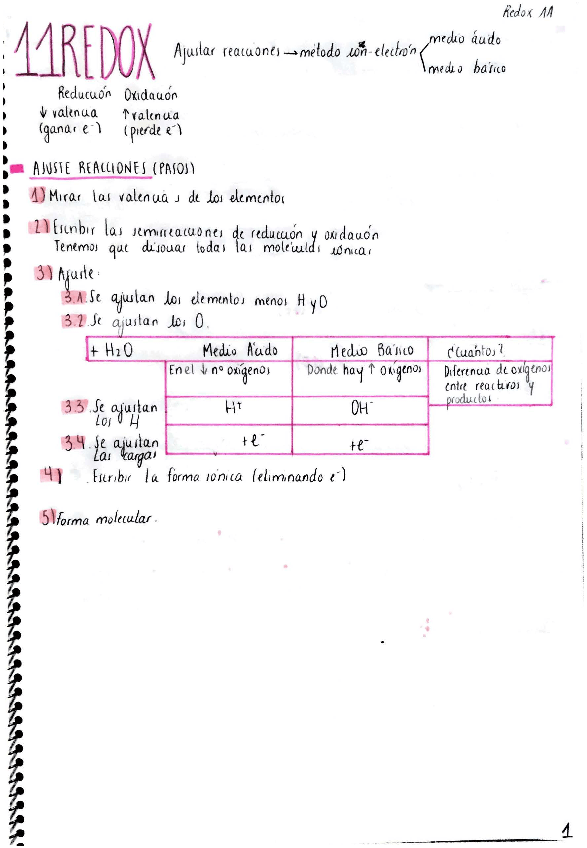 Redox 11
11REDOX
Ajustar reacciones → método ión-electrón
medio ácido
medio básico
Reducción Oxidación
↓ valencia ↑ valencia
(ganar e⁻) (pierde e⁻)
AJUSTE REACCIONES (PASOS)
1) Mirar las valencias de los elementos
2) Escribir las semirreacciones de reducción y oxidación
Tenemos que disociar todas las moléculas iónicas
3) Ajuste:
3.1. Se ajustan los elementos menos H y O
3.2. Se ajustan los O.
+ H2O Medio Ácido Medio Básico ¿Cuántos?
En el ↓ nº oxígenos Donde hay ↑ oxígenos Diferencia de oxígenos
entre reactivos y
productos
3.3. Se ajustan H⁺ OH⁻
los H
3.4. Se ajustan +e⁻ +e⁻
las cargas
4) . Escribir la forma iónica (eliminando e⁻)
5) Forma molecular.
1